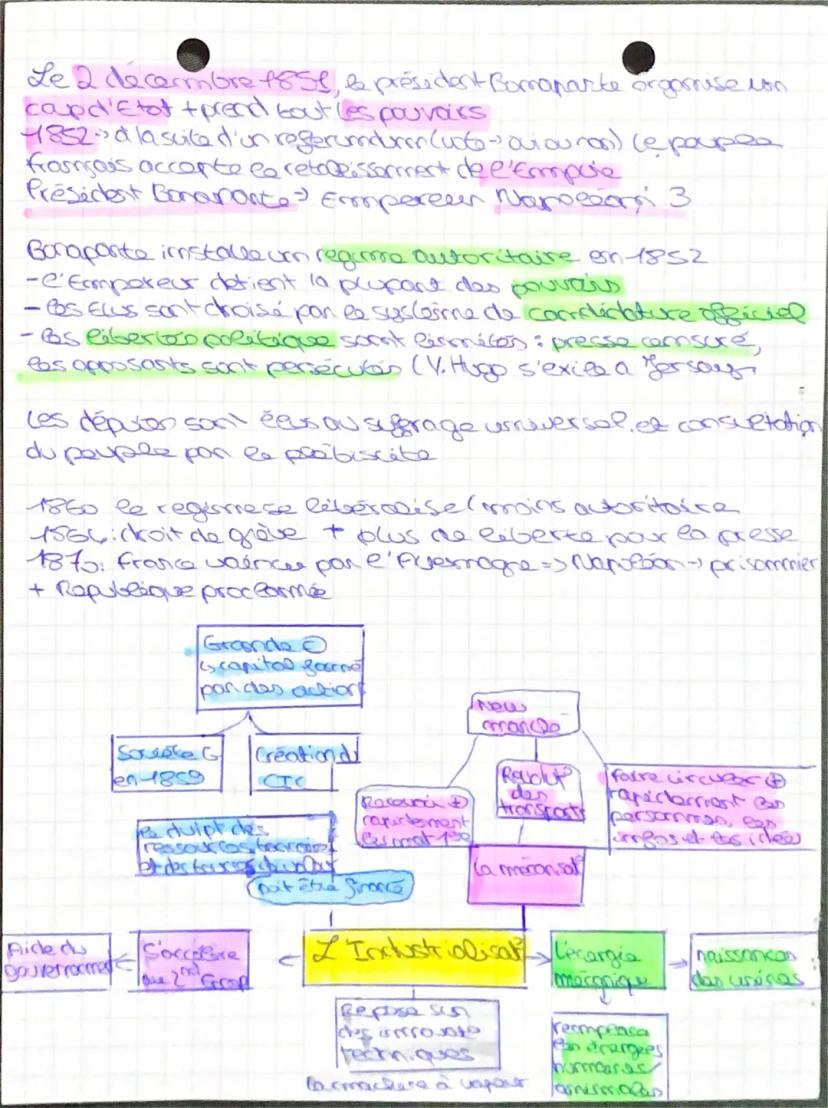 Le 2 décembre 1851, le président Bonaparte organise un
coup d'Etat + prend tout les pouvoirs
1852 → à la suite d'un referundum (vote → oui ou non) le peuple
français accepte le retablissement de l'Empire
Président Bonaparte → Empereur Napoléon 3
Bonaparte installe un regime autoritaire en 1852
- l'Empereur detient la plupart des pouvoirs
- les élus sont choisé par le système de candidature officiel
- les libertés politique sont limités : presse censuré,
les opposants sont persécutés (V. Hugo s'exile a Jersey
Les députés sont élus au suffrage universel et consultation
du peuple par le plébiscite
1860 le regime se libéralise (moins autoritaire
1864: droit de grève + plus de liberte pour la presse
1870: France vaincue par l'Allemagne => Napoléon → prisonnier
+ République proclamée
Grande
↳ capital formé
par des action
Société G
en 1859
Création du
CIC
New
marché
Recevoir ⊕
rapidement
les mat 1ère
Revolut°
des
transports
Faire circuler ⊕
rapidement les
personnes, les
infos et les idées
le dvlpt des
ressources
et des
doit être financé
La mécanisat°
Aide du
gouvernement
S'accélère
au 2nd Emp
L'Industrialisat°
L'énergie
mécanique
naissances
des usines
Repose sur
des innovat°
techniques
La machine à vapeur
remplace
les énergies
humaines/
animales